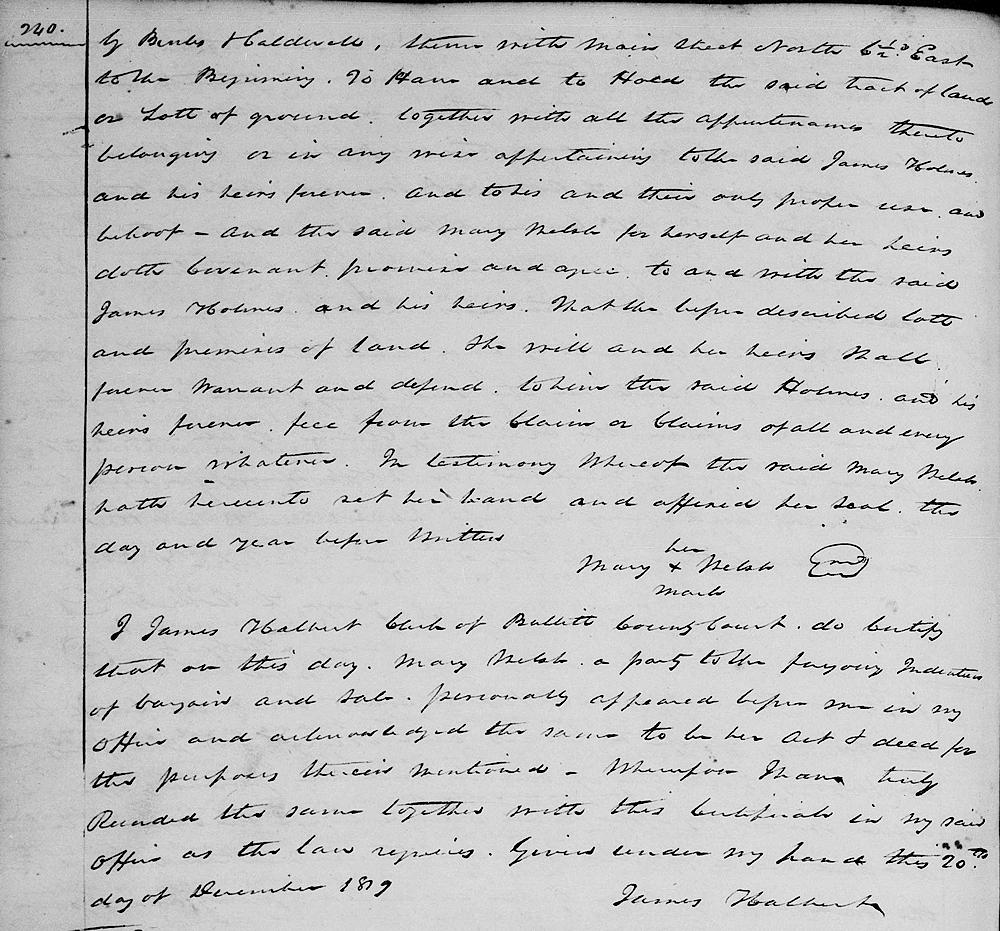 240.
by Banks Caldwell, thence with Main Street North 6½° East
to the Beginning. To Have and to Hold the said tract of land
or Lott of ground. together with all the appurtenances thereto
belonging or in any wise appertaining to the said James Holmes.
and his heirs forever. and to his and their only proper use. and
behoof – and the said Mary Welsh for herself and her heirs
doth Covenant. promise and agree. to and with the said
James Holmes. and his heirs. That the before described lott
and premises of land. She will and her heirs Shall.
forever Warrant and defend. to him the said Holmes. and his
heirs forever. free from the Claim or Claims of all and every
person whatever. In testimony Whereof the said Mary Welsh.
hath hereunto set her hand and affixed her Seal. the
day and year before Written
her
Mary + Welsh seal
mark
I James Halbert Clerk of Bullitt County Court. do Certify
that on this day. Mary Welsh. a party to the foregoing Indenture
of bargain and Sale. personally appeared before me in my
Office and acknowledged the same to be her Act & deed for
the purposes therein Mentioned – Wherefore I have truly
Recorded the same together with this Certificate in my said
Office as the law requires. Given under my hand this 20th
day of December 1819
James Halbert